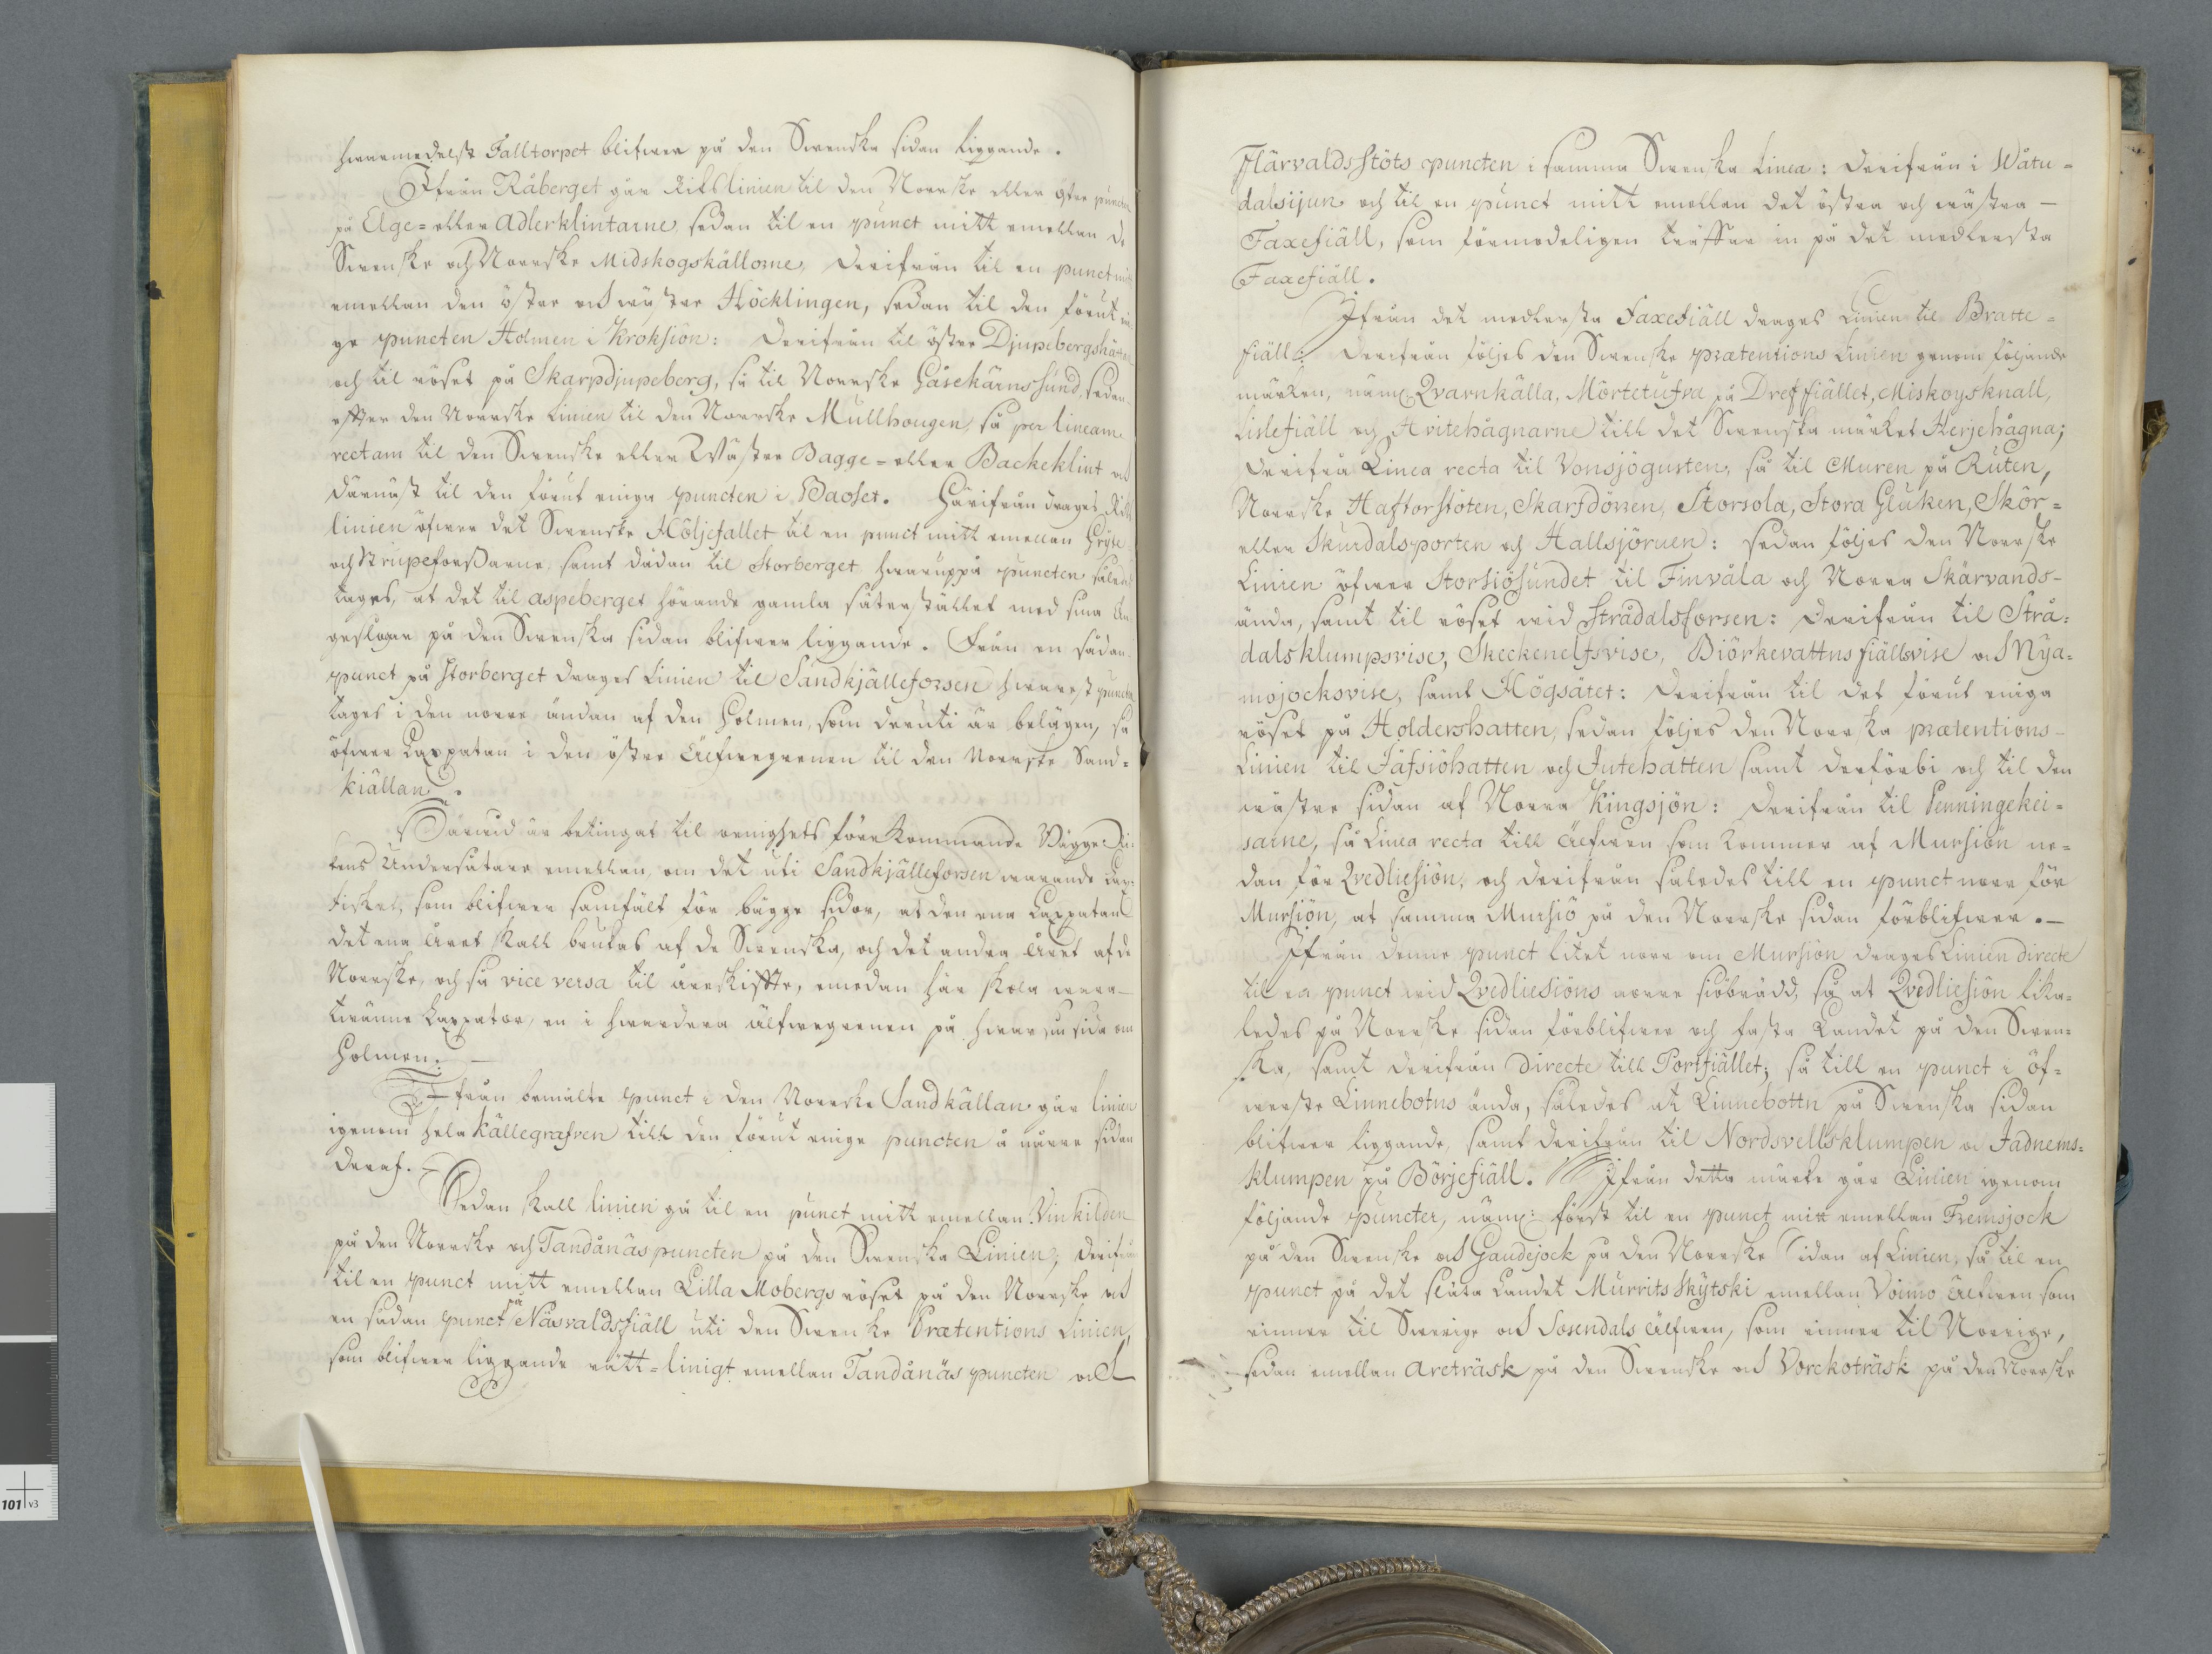 hwarmedelst Falltorpet blifwer på den Swenska sidan liggande.
Ifrån Råberget går Rikslinien til den Norrske eller östre puncten
på Elge= eller Adlerklintarne, sedan til en punct mitt emellan de
Swenske och Norrske Midskogskällorne, Derifrån til en punct mitt
emellan den östre och wästre Höcklingen, sedan til den förut eni-
ge puncten Holmen i Kroksiön: Derifrån til östre Djupebergshätta
och til röset på Skarpdjupeberg, så til Norrske Gåsekärnssund, sedan
efter den Norrske Linien til den Norrske Mullhougen, så per lineam
rectam til den Swenske eller Wästre Bagge= eller Backeklint och
därnäst til den förut eniga puncten i Baoset. Härifrån drages Riks
linien öfwer det Swenske Höljefallet til en punct mitt emellan Gryte
och Strupeforssarne, samt dädan til Storberget hwaruppå puncten således
tages, at det til Aspeberget hörande gamla säterstället med sina Än-
geslogar på den Swenska sidan blifwer liggande. Från en sådan
punct på Storberget drages Linien til Sandkjälleforsen hwarest puncten
tages i den norre ändan af den Holmen, som deruti är belägen, så
öfwer Laxpatan i den östre Älfwegrenen til den Norrske Sand=
kiällan.
Härwid är betingat til oenighets förekommande Bägge Ri-
kens Undersåtare emellan, om det uti Sandkjälleforsen warande Lax-
fisket, som blifwer samfält för bägge sidor, at den ena Laxpatan
det ena Året skall brukas af de Swenska, och det andra Året af de
Norrske, och så vice versa til årskiffte, emedan här skola wara
twänne Laxpator, en i hwardera älfwegrenen på hwar sin sida om
Holmen. —
Ifrån bemälte punct i den Norrske Sandkällan går linien
igenom hela Källegrafven till den förut enige puncten å närre sidan
deraf.
Sedan skall linien gå til en punct mitt emellan Vinkilden
på den Norrske och Tandånäs puncten på den Swenska Linien; derifrån
til en punct mitt emellan Lilla Mobergs röset på den Norrske och
en sådan punct på Näsvaldsfiäll uti den Swenske Prætentions Linien,
som blifwer liggande rätt=linigt emellan Tandånäs puncten och
Flärvaldsstöts puncten i samma Swenska Linea: Derifrån i Wåtu=
dalsijun och til en punct mitt emellan det östra och wästra —
Faxefiäll, som förmodeligen träffar in på det medlersta
Faxefiäll.
Ifrån det medlersta Faxefiäll drages Linien til Bratte=
fiäll: Derifrån följes den Swenske prætentions Linien genom följande
märken, näml. Qvarnkälla, Mörtetufva på Dreffiället, Miskoysknall,
Lislefiäll och Hvitehågnarne till det Swenska märket Herjehågna;
Derifrå Linea recta til Vonsjögusten, så til Muren på Ruten,
Norrske Haftorstöten, Skarfdörren, Storsola, Stora Gluken, Skör=
eller Skurdalsporten och Hallsjöruen: sedan följes den Norrske
Linien öfwer Storsiösundet til Finvåla och Norra Skärvands-
ända, samt til röset wid Strådalsforsen: Derifrån til Strå=
dalsklumpsvise, Skeckenelfsvise, Biörkevattns fiällsvise och Nya=
mojocksvise, samt Högsätet: Derifrån til det förut eniga
röset på Holdershatten, sedan följes den Norrska prætentions-
Linien til Jäfsiöhatten och Jutehatten samt derförbi och til den
wästre sidan af Norra Kingsjön: Derifrån til Penningekei=
sarne, så Linea recta till Älfwen som kommer af Mursiön ne=
dan för Qvedliesiön, och derifrån således till en punct norr för
Mursiön, at samma Mursiö på den Norrske sidan förblifwer. —
Ifrån denne punct litet norr om Mursiön drages Linien directe
til en punct wid Qvedliesiöns norre siöbrädd, så at Qvedliesiön lika=
ledes på Norrske sidan förblifwer och fasta Landet på den Swen=
ska, samt derifrån directe till Portfiället; så till en punct i öf=
werste Linnebotns ända, således at Linnebottn på Swenska sidan
blifwer liggande, samt derifrån til Nordsvellsklumpen och Jadnems=
klumpen på Börjefiäll. Ifrån detta märke går Linien igenom
följande puncter, näml: först til en punct mitt emellan Fremsjock
på den Swenske och Gaudejock på den Norrske Sidan af Linien, så til en
punct på det släta Landet Murrits Skytski emellan Voimo Älfwen som
rinner til Swerige och Sosendals Älfwen, som rinner til Norrige,
sedan emellan Areträsk på den Swenske och Vorekoträsk på den Norrske